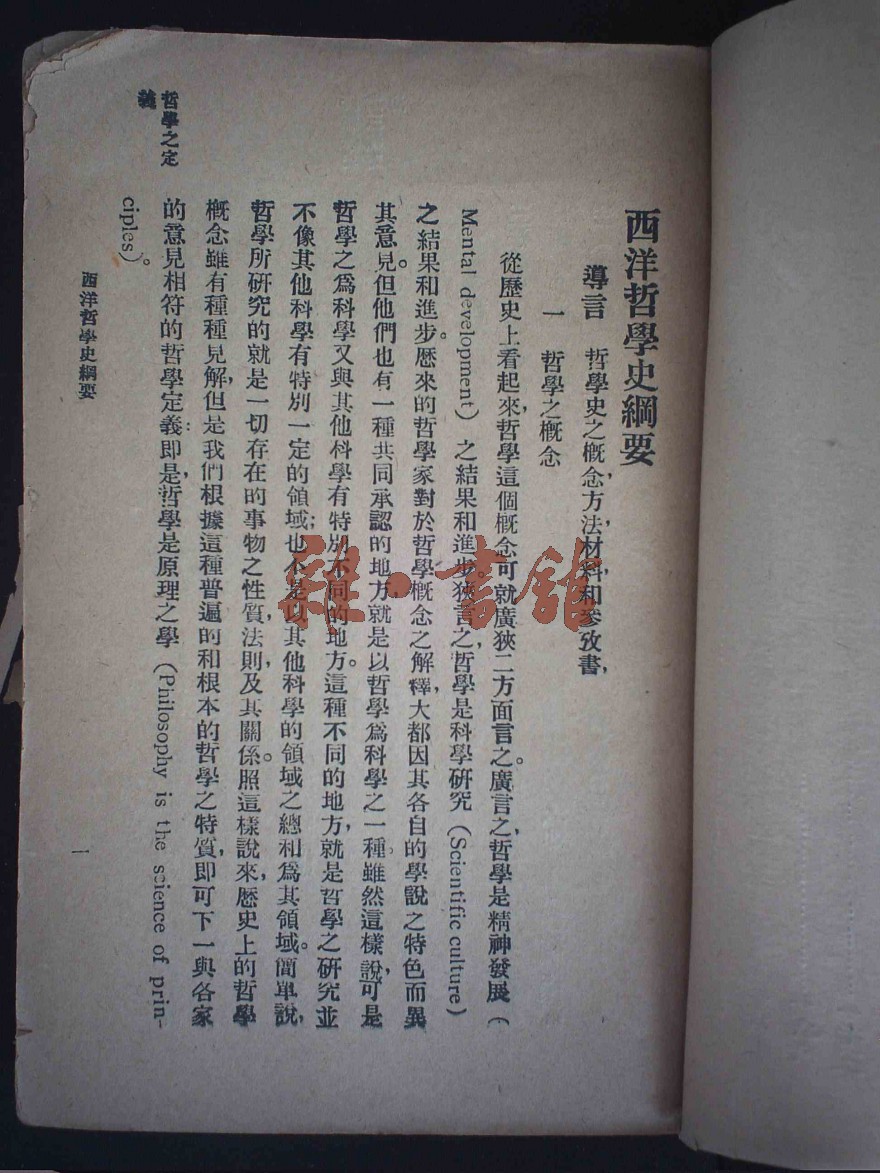 西洋哲學史綱要
導言　哲學史之概念,方法,材料和參攷書,
一　哲學之概念
從歷史上看起來,哲學這個概念可就廣狹二方面言之。廣言之,哲學是精神發展(
Mental development) 之結果和進步。狹言之,哲學是科學研究 (Scientific culture)
之結果和進步。歷來的哲學家對於哲學概念之解釋,大都因其各自的學說之特色而異
其意見。但他們也有一種共同承認的地方就是以哲學爲科學之一種。雖然這樣說,可是
哲學之爲科學又與其他科學有特別不同的地方。這種不同的地方,就是哲學之研究並
不像其他科學有特別一定的領域;也不是以其他科學的領域之總和爲其領域。簡單說,
哲學所研究的就是一切存在的事物之性質,法則,及其關係。照這樣說來,歷史上的哲學
概念雖有種種見解,但是我們根據這種普遍的和根本的哲學之特質,即可下一與各家
的意見相符的哲學定義:即是,哲學是原理之學 (Philosophy is the science of prin-
ciples)。
哲學之定
義
西洋哲學史綱要
一
雜·書館